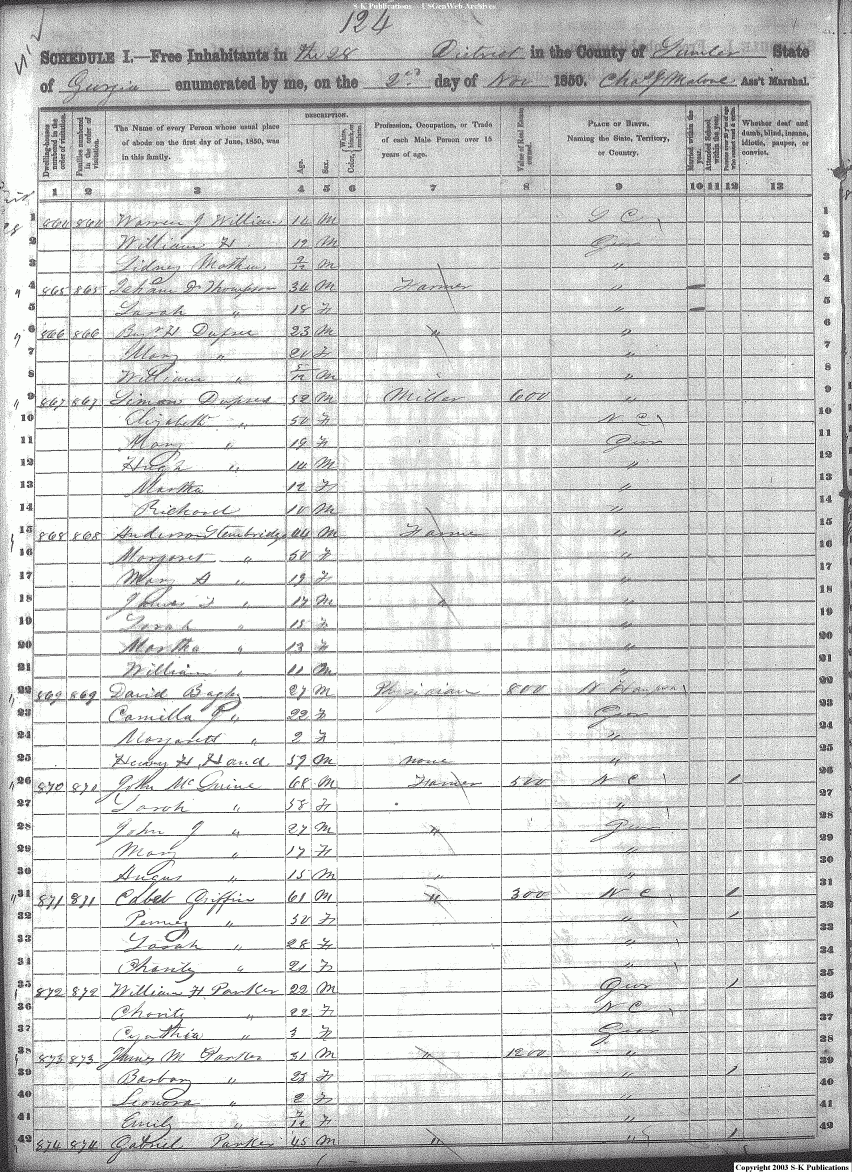 S-K Publications - USGenWeb Archives
124
SCHEDULE I.—Free Inhabitants in the 28 District in the County of Sumter State
of Georgia enumerated by me, on the 2nd day of Nov 1850. Chas J Malone Ass't Marshal.
Dwelling-houses numbered in the order of visitation. Families numbered in the order of visitation. The Name of every Person whose usual place of abode on the first day of June, 1850, was in this family. DESCRIPTION. Age. Sex. Color, {White, black, or mulatto. Profession, Occupation, or Trade of each Male Person over 15 years of age. Value of Real Estate owned. PLACE OF BIRTH. Naming the State, Territory, or Country. Married within the year. Attended School within the year. Persons over 20 y'rs of age who cannot read & write. Whether deaf and dumb, blind, insane, idiotic, pauper, or convict.
1 2 3 4 5 6 7 8 9 10 11 12 13
1 864 864 Warren J William 14 M 1
2 William H 12 M Geor 2
3 Sidney Mathew 9/12 M " 3
4 865 865 Thompson 34 M Farmer " 4
5 Sarah " 18 F " 5
6 866 866 H Dupree 23 M " " 6
7 Mary " 20 F " 7
8 William " 5/12 M " 8
9 867 867 Simon Dupree 52 M Miller 600 " 9
10 Elizabeth " 50 F N C 10
11 Mary " 19 F Geor 11
12 Hugh " 14 M " 12
13 Martha 12 F " 13
14 Richard 10 M " 14
15 868 868 Anderson Stembridge 44 M Farmer " 15
16 Margaret " 50 F " 16
17 Mary A " 19 F " 17
18 James T " 17 M " " 18
19 Sarah " 15 F " 19
20 Martha " 13 F " 20
21 William " 11 M " 21
22 869 869 David Bagley 27 M Physician 800 N 22
23 Camilla J " 22 F Geor 23
24 Margarett " 2 F " 24
25 Henry H Hand 59 M none " 25
26 870 870 John McGuire 68 M Farmer 500 N C / 26
27 Sarah " 58 F " 27
28 John J " 27 M " Geor 28
29 Mary " 17 F " 29
30 Angus " 15 M " " 30
31 871 871 Griffin 61 M " 300 N C / 31
32 " 50 F " / 32
33 Sarah " 28 F " 33
34 Charity " 21 F " 34
35 872 872 William H Parker 22 M Geor / 35
36 Charity " 22 F N C 36
37 Cynthia " 3 F Geor 37
38 873 873 James M Parker 31 M " 1200 " 38
39 " 25 F " / 39
40 Leonora " 2 F " 40
41 Emily 7/12 F " 41
42 874 874 Gabriel Parker 45 M " " / 42
Copyright 2003 S-K Publications